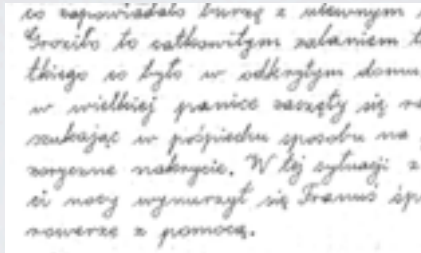 co zapowiadało burzę z ulewnym
Groziło to całkowitym zalaniem
tkiego co było w odkrytym domu
w wielkiej panice zaczęły się
szukając w pośpiechu sposobu na
zoryczne nakrycie. W tej sytuacji z
ci nocy wynurzył się Franuś
rowerze z pomocą.